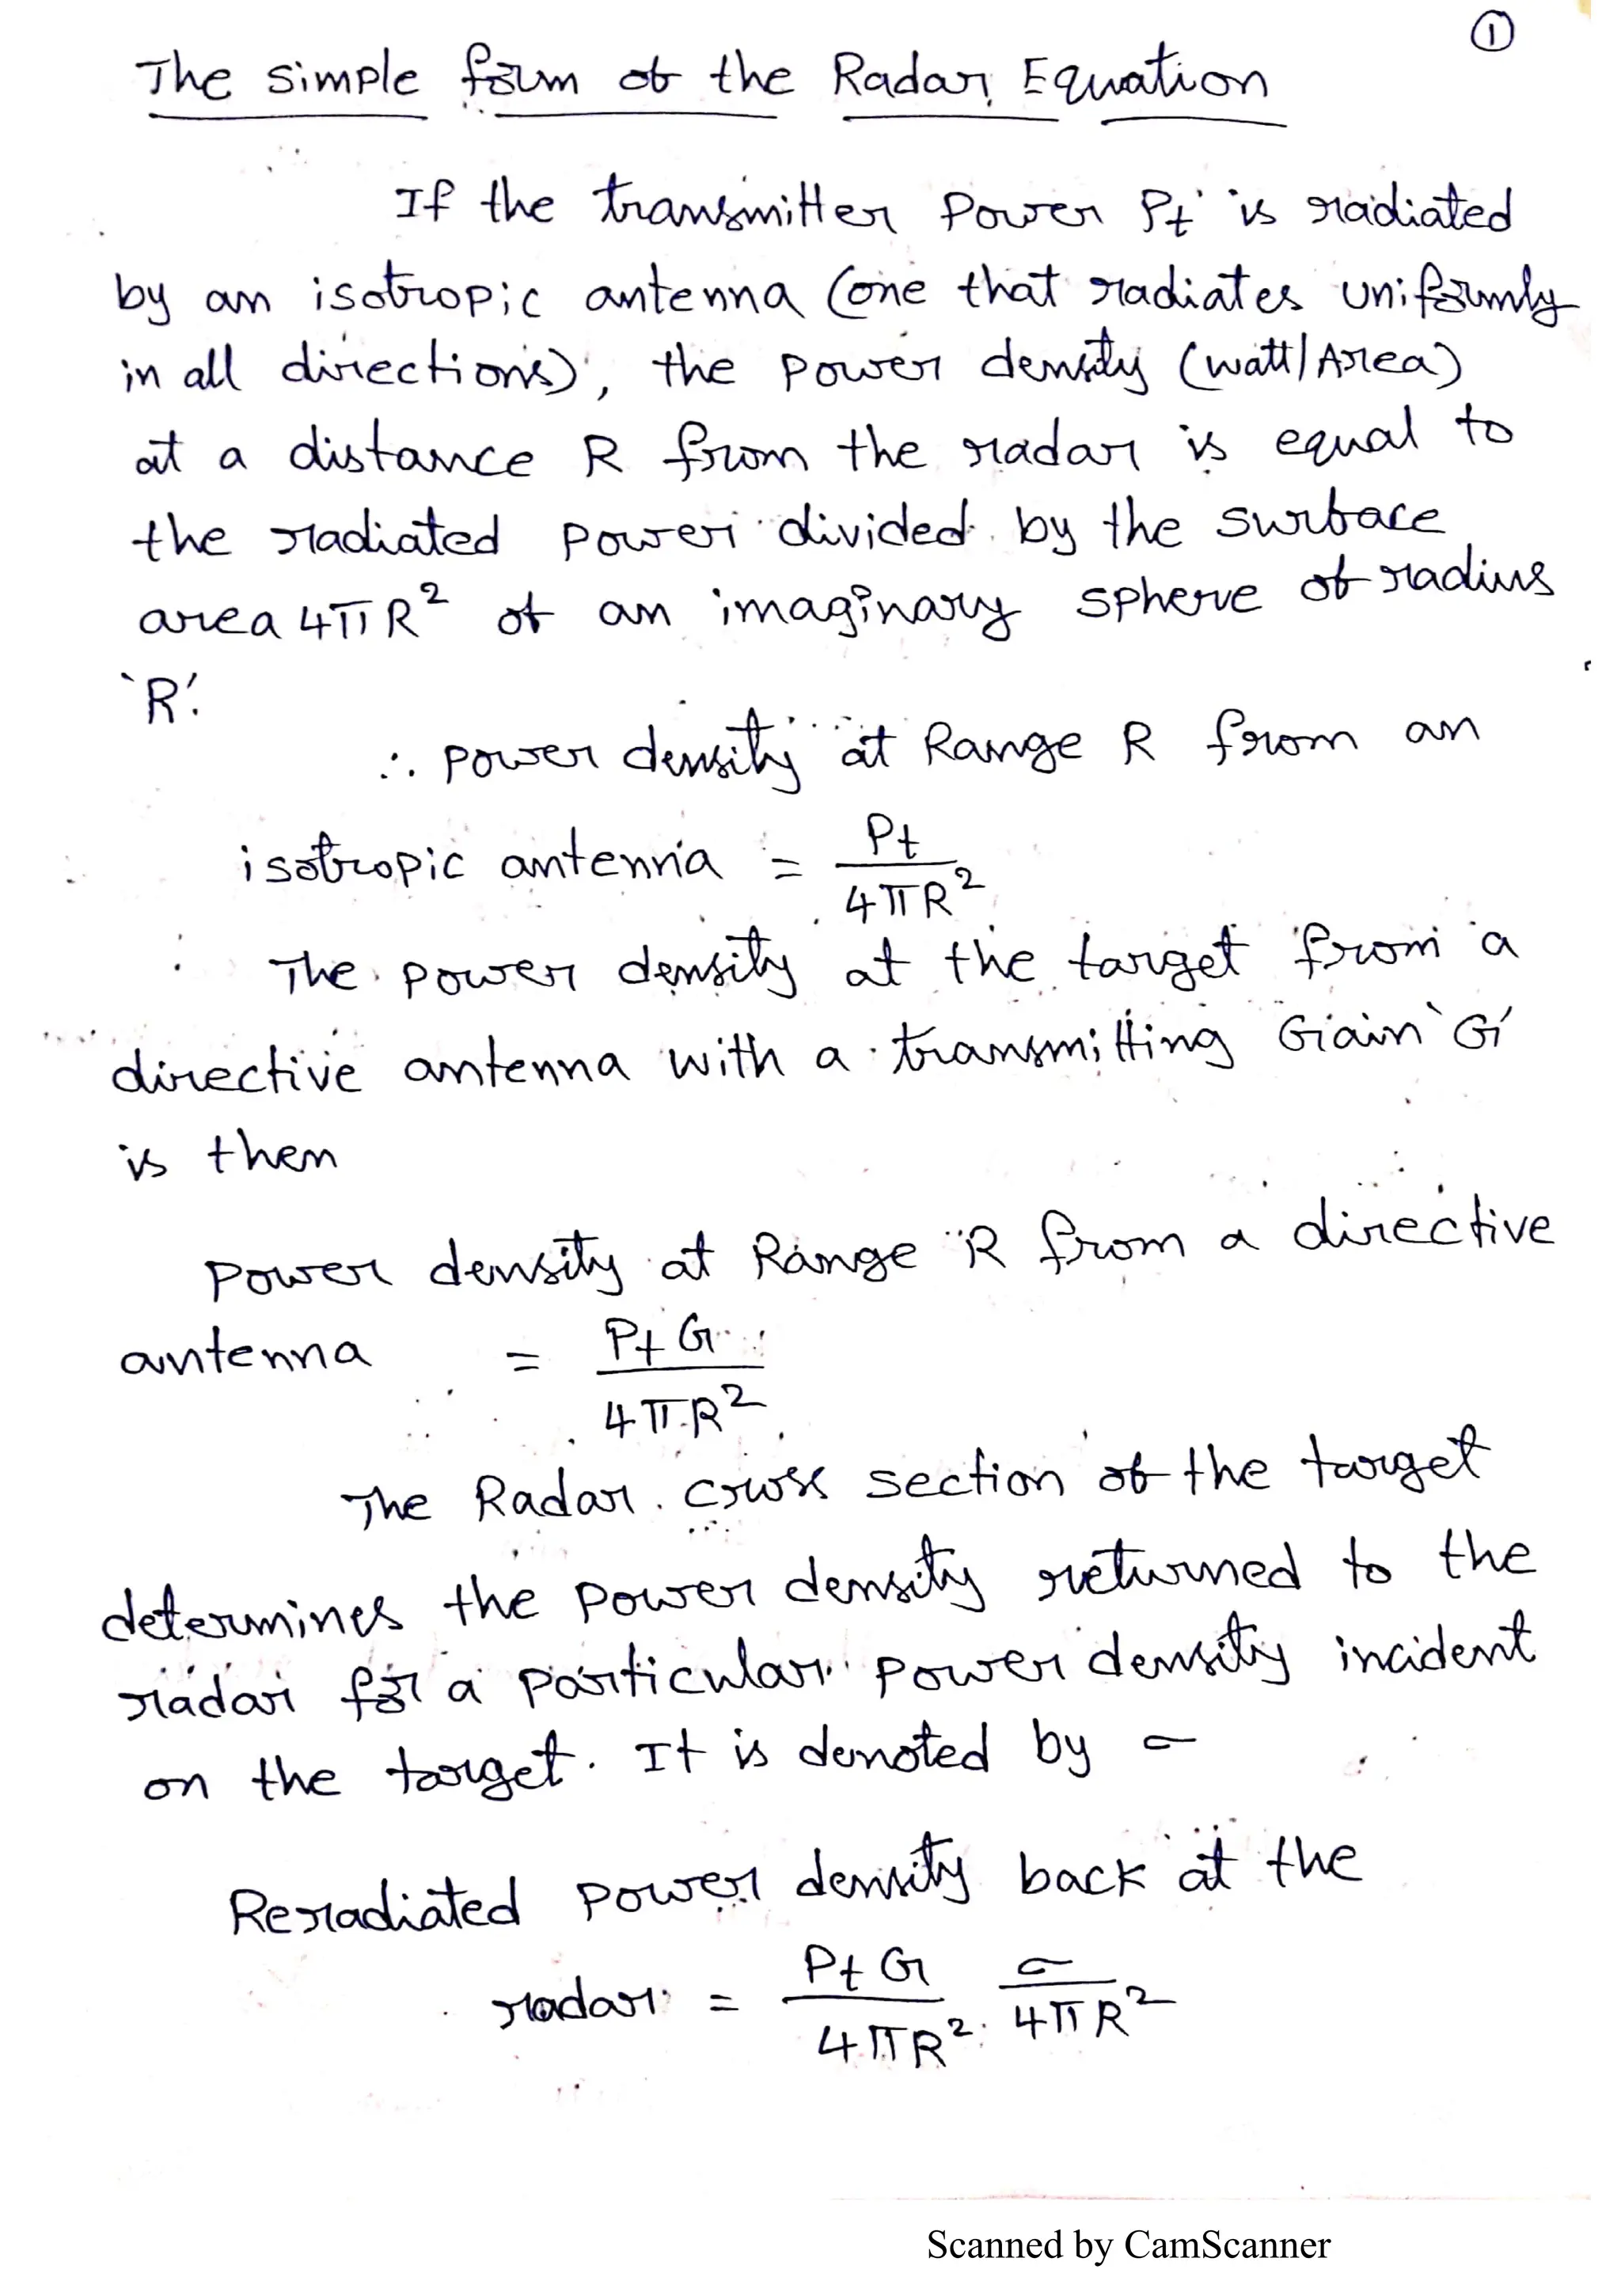 ①
The simple form of the Radar Equation
If the transmitter Power Pt is radiated
by an isotropic antenna (one that radiates uniformly
in all directions), the power density (watt/Area)
at a distance R from the radar is equal to
the radiated power divided by the surface
area 4πR² of an imaginary sphere of radius
`R'.
∴ power density at Range R from an
isotropic antenna = Pt / 4πR²
The power density at the target from a
directive antenna with a transmitting Gain `G'
is then
power density at Range R from a directive
antenna = Pt G / 4πR²
The Radar cross section of the target
determines the power density returned to the
radar for a particular power density incident
on the target. It is denoted by σ
Reradiated power density back at the
radar = Pt G / 4πR² · σ / 4πR²
Scanned by CamScanner